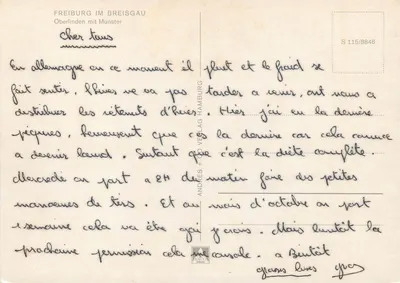 FREIBURG IM BREISGAU
Oberlinden mit Münster
S 115/8848
cher tous
En allemagne en ce moment il pleut et le froid se
fait sentir. L'hiver ne va pas tarder a venir, ont nous a
distribuer les vêtements d'hiver. Hier j'ai eu la dernière
piqures, heureusement que c'est la dernière car cela commence
a devenir lourd. Surtout que c'est la diète complête.
Mercredi on part a 2H du matin faire des petites
manœuvres de tirs. Et au mois d'octobre on part
1 semaine cela va être gai je crois. Mais bientôt la
prochaine permission cela me console. a Bientôt
VERLAG HAMBURG